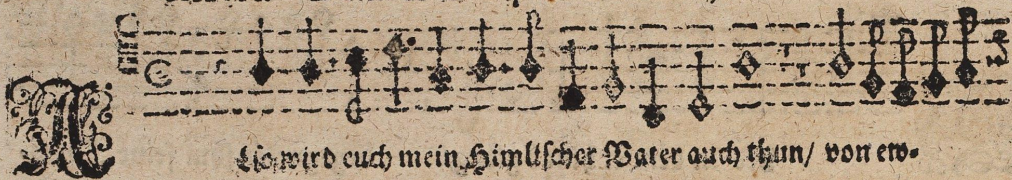 Also wird euch mein Himlischer Vater auch thun/ von ew-